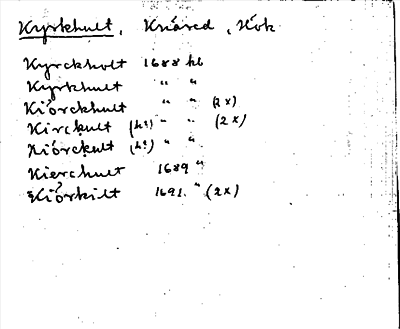 Kyrkhult, Knäred, Hök
Kyrckholt 1688 hb
Kyrkhult " "
Kiörckhult " " (2x)
Kirckult (h?) " " (2x)
Kiörckult (h?) " "
Kierchult 1689 "
Kiörkilt 1691 " (2x)